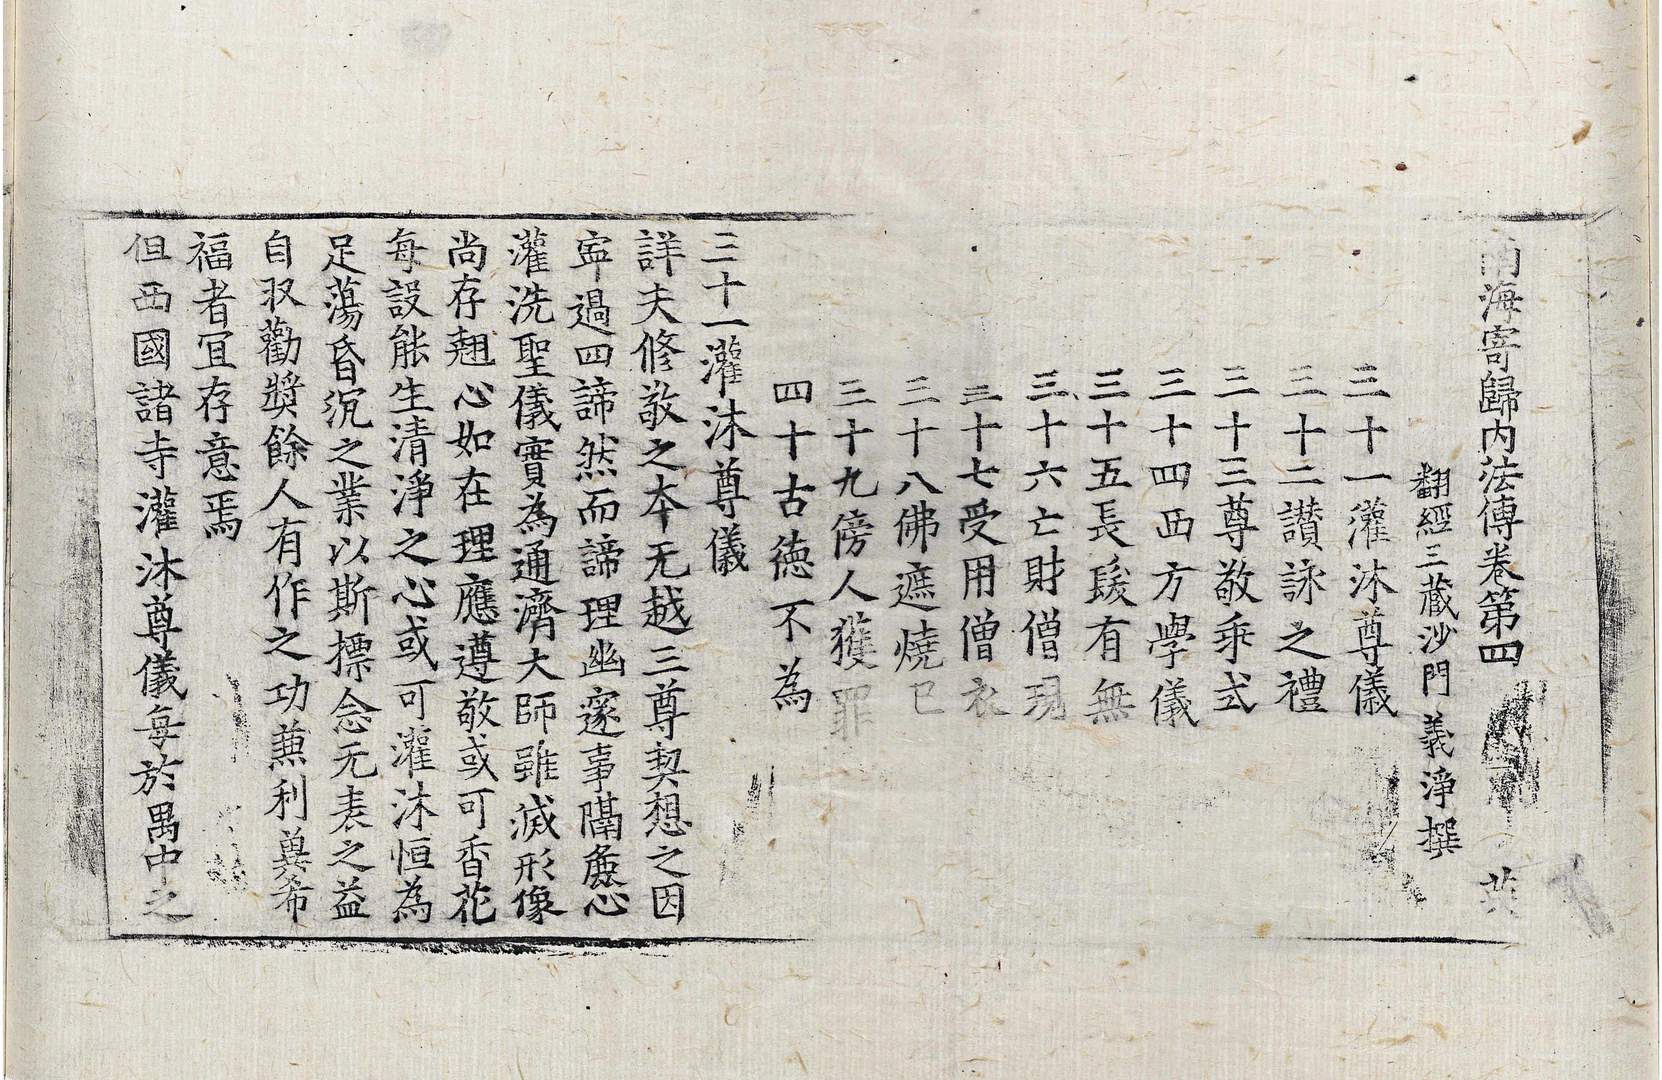 南海寄歸内法傳卷第四 英
翻經三藏沙門義淨撰
三十一灌沐尊儀
三十二讃詠之禮
三十三尊敬乖式
三十四西方學儀
三十五長髮有無
三十六亡財僧現
三十七受用僧衣
三十八佛遮燒已
三十九傍人獲罪
四十古徳不為
三十一灌沐尊儀
詳夫修敬之本无越三尊契想之因
寧過四諦然而諦理幽邃事隔麁心
灌洗聖儀實為通濟大師雖滅形像
尚存翹心如在理應遵敬或可香花
每設能生清淨之心或可灌沐恒為
足蕩昏沉之業以斯摽念无表之益
自収勸獎餘人有作之功兼利兾希
福者冝存意焉
但西國諸寺灌沐尊儀每於禺中之